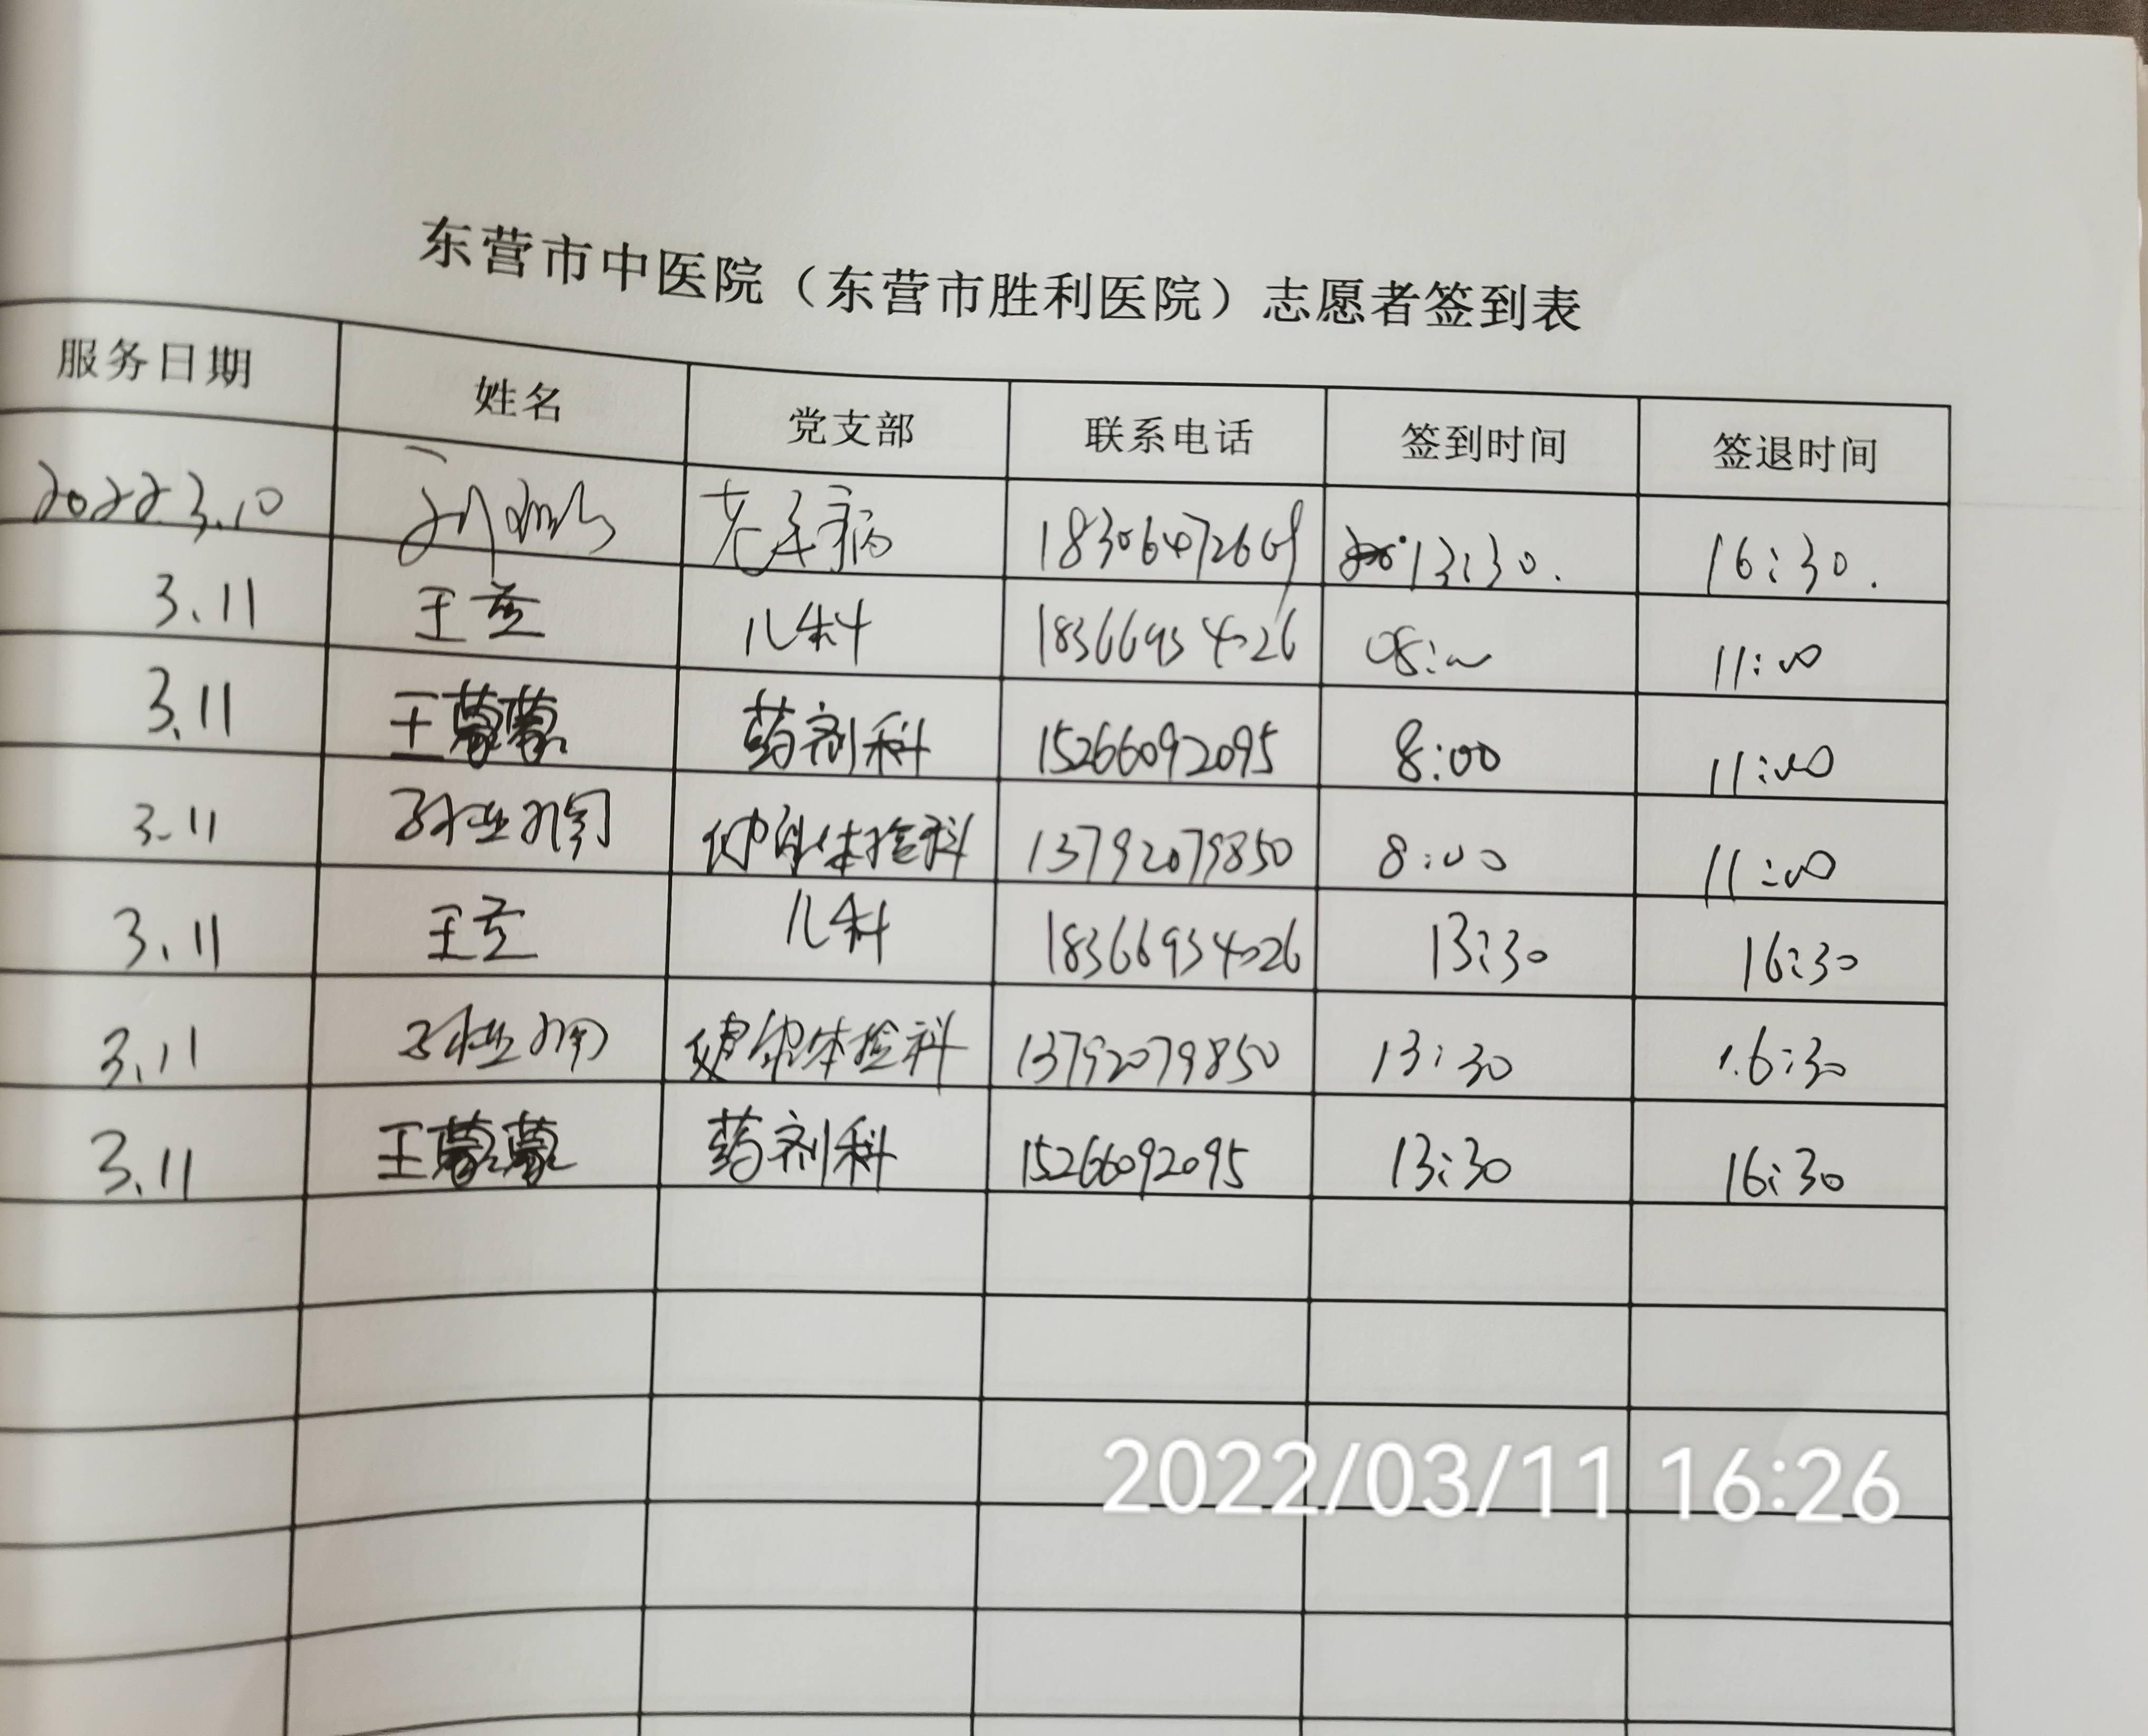 东营市中医院（东营市胜利医院）志愿者签到表
服务日期 姓名 党支部 联系电话 签到时间 签退时间
2022.3.10 老年病 13:30. 16:30.
3.11 王 儿科 18366934026 08:00 11:00
3.11 王蒙蒙 药剂科 15266092095 8:00 11:00
3.11 体检科 13792079850 8:00 11:00
3.11 王 儿科 18366934026 13:30 16:30
3.11 健康体检科 13792079850 13:30 16:30
3.11 王蒙蒙 药剂科 15266092095 13:30 16:30
2022/03/11 16:26